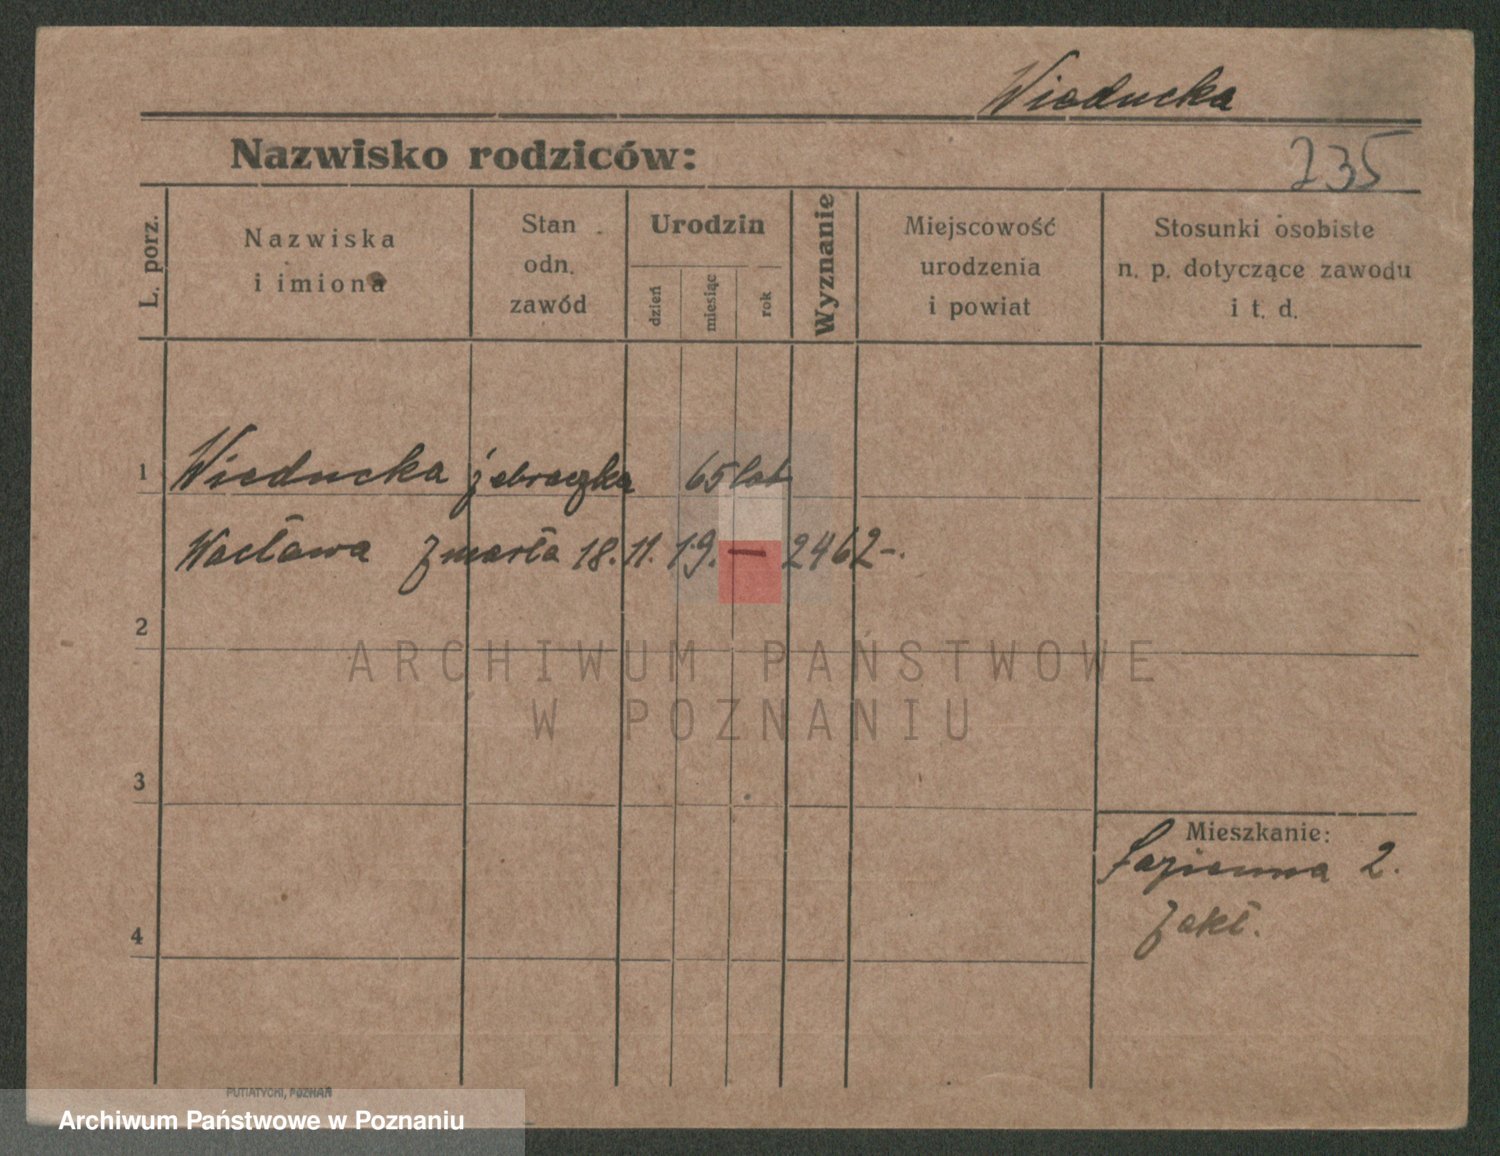 Wieducka
Nazwisko rodziców:
235
L. porz.
Nazwiska
i imiona
Stan
odn.
zawód
Urodzin
dzień
miesiąc
rok
Wyznanie
Miejscowość
urodzenia
i powiat
Stosunki osobiste
n. p. dotyczące zawodu
i t. d.
1 Wieducka żebraczka 65 lat
Wacława zmarła 18.11.19. — 2462 -.
2
ARCHIWUM PAŃSTWOWE
W POZNANIU
3
Mieszkanie:
Łazienna 2.
zakł.
4
PUTIATYCKI, POZNAŃ
Archiwum Państwowe w Poznaniu